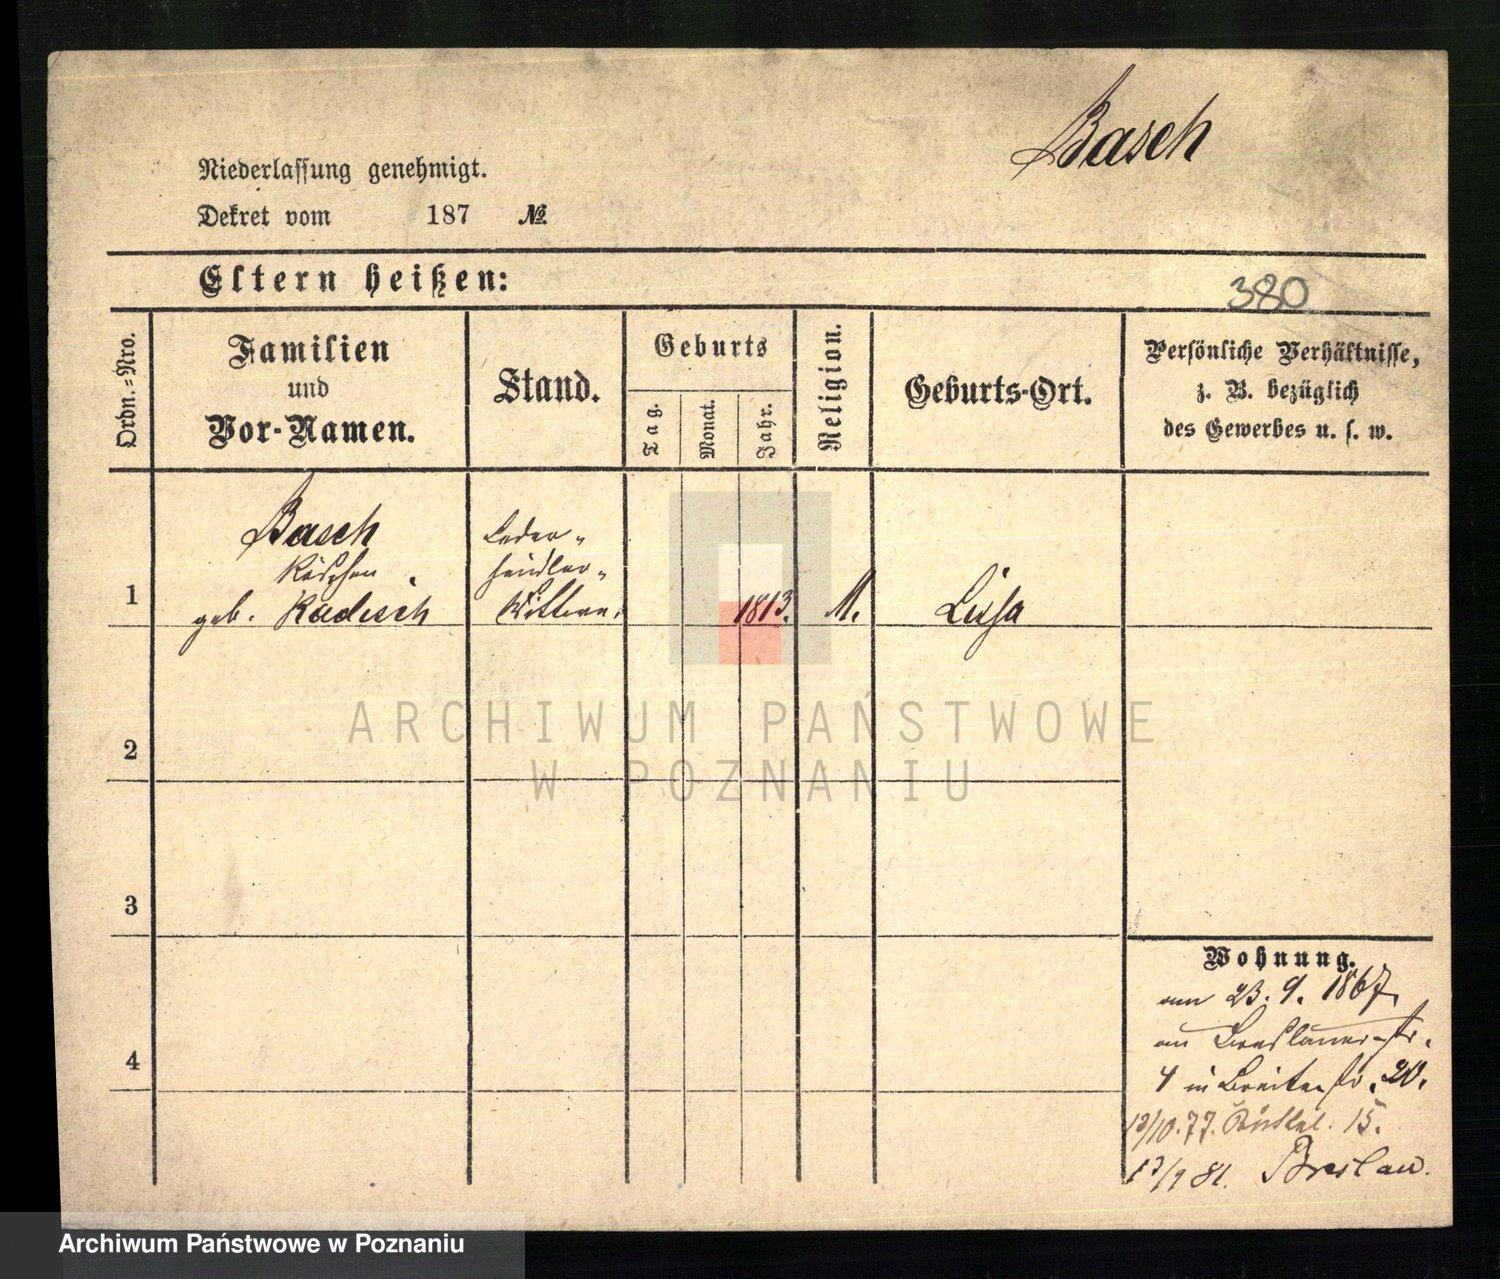 Basch
Niederlassung genehmigt.
Dekret vom 187 №
Eltern heißen:
380
Ordn.-Nro.
Familien
und
Vor-Namen.
Stand.
Geburts
Tag.
Monat.
Jahr.
Religion.
Geburts-Ort.
Persönliche Verhältnisse,
z. B. bezüglich
des Gewerbes u. s. w.
1
Basch
Röschen
geb. Radisch
Leder-
händler-
Wittwe.
1813.
M.
Lissa
ARCHIWUM PAŃSTWOWE
W POZNANIU
2
3
4
Wohnung.
am 23. 9. 1867.
Breslauer-Str.
in Breite Str. 20.
12/10.77. 15.
17/9 81. Breslau.
Archiwum Państwowe w Poznaniu